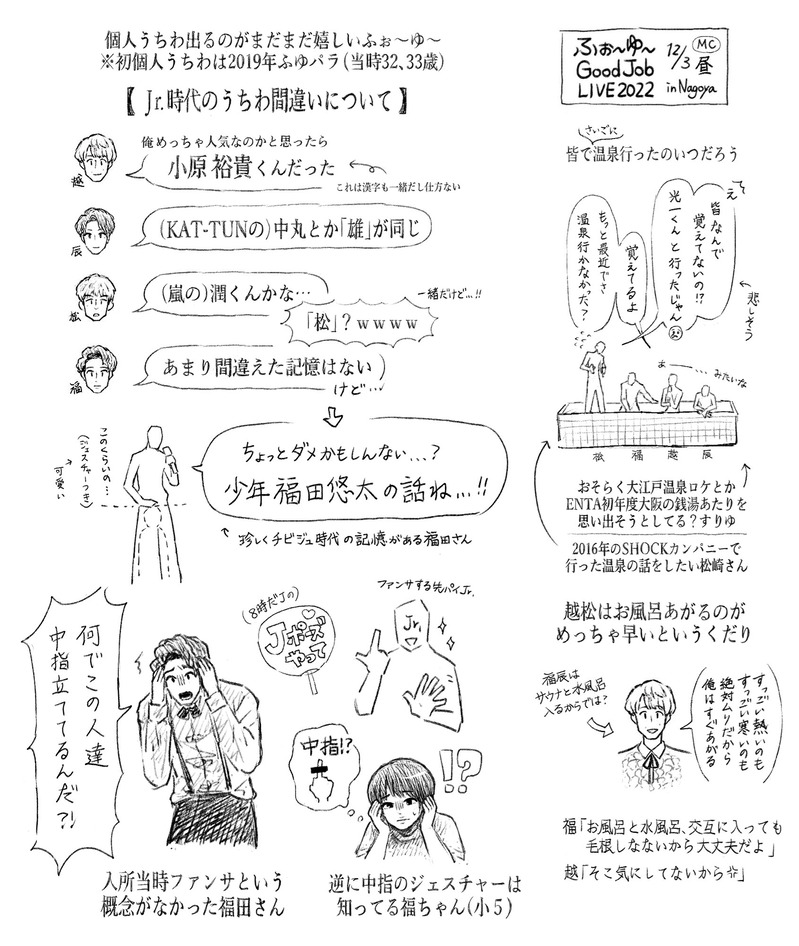 個人うちわ出るのがまだまだ嬉しいふぉ〜ゆ〜
※初個人うちわは2019年ふゆパラ(当時32、33歳)
【Jr.時代のうちわ間違いについて】
俺めっちゃ人気なのかと思ったら
小原裕貴くんだった
これは漢字も一緒だし仕方ない
越
(KAT-TUNの)中丸とか「雄」が同じ
辰
(嵐の)潤くんかな…
松
一緒だけど…!!
「松」?wwww
あまり間違えた記憶はない
けど…
福
ちょっとダメかもしんない…?
少年福田悠太の話ね…!!
このくらいの…
(ジェスチャーつき)
可愛い
珍しくチビジュ時代の記憶がある福田さん
何でこの人達
中指立ててるんだ?!
(8時だJの)
Jポーズ
やって
ファンサする先パイJr.
Jr.
中指!?
!?
入所当時ファンサという
概念がなかった福田さん
逆に中指のジェスチャーは
知ってる福ちゃん(小5)
ふぉ〜ゆ〜
Good Job
LIVE2022
12/3
MC
昼
in Nagoya
さいごに
皆で温泉行ったのいつだろう
え
皆なんで
覚えてないの!?
光一くんと行ったじゃん
悲しそう
覚えてるよ
もっと最近でさ
温泉行かなかった?
あー…みたいな
松
福
越
辰
おそらく大江戸温泉ロケとか
ENTA初年度大阪の銭湯あたりを
思い出そうとしてる?すりゆ
2016年のSHOCKカンパニーで
行った温泉の話をしたい松崎さん
越松はお風呂あがるのが
めっちゃ早いというくだり
福辰は
サウナと水風呂
入るからでは?
すっごい熱いのも
すっごい寒いのも
絶対ムリだから
俺はすぐあがる
福「お風呂と水風呂、交互に入っても
毛根しなないから大丈夫だよ」
越「そこ気にしてないから」